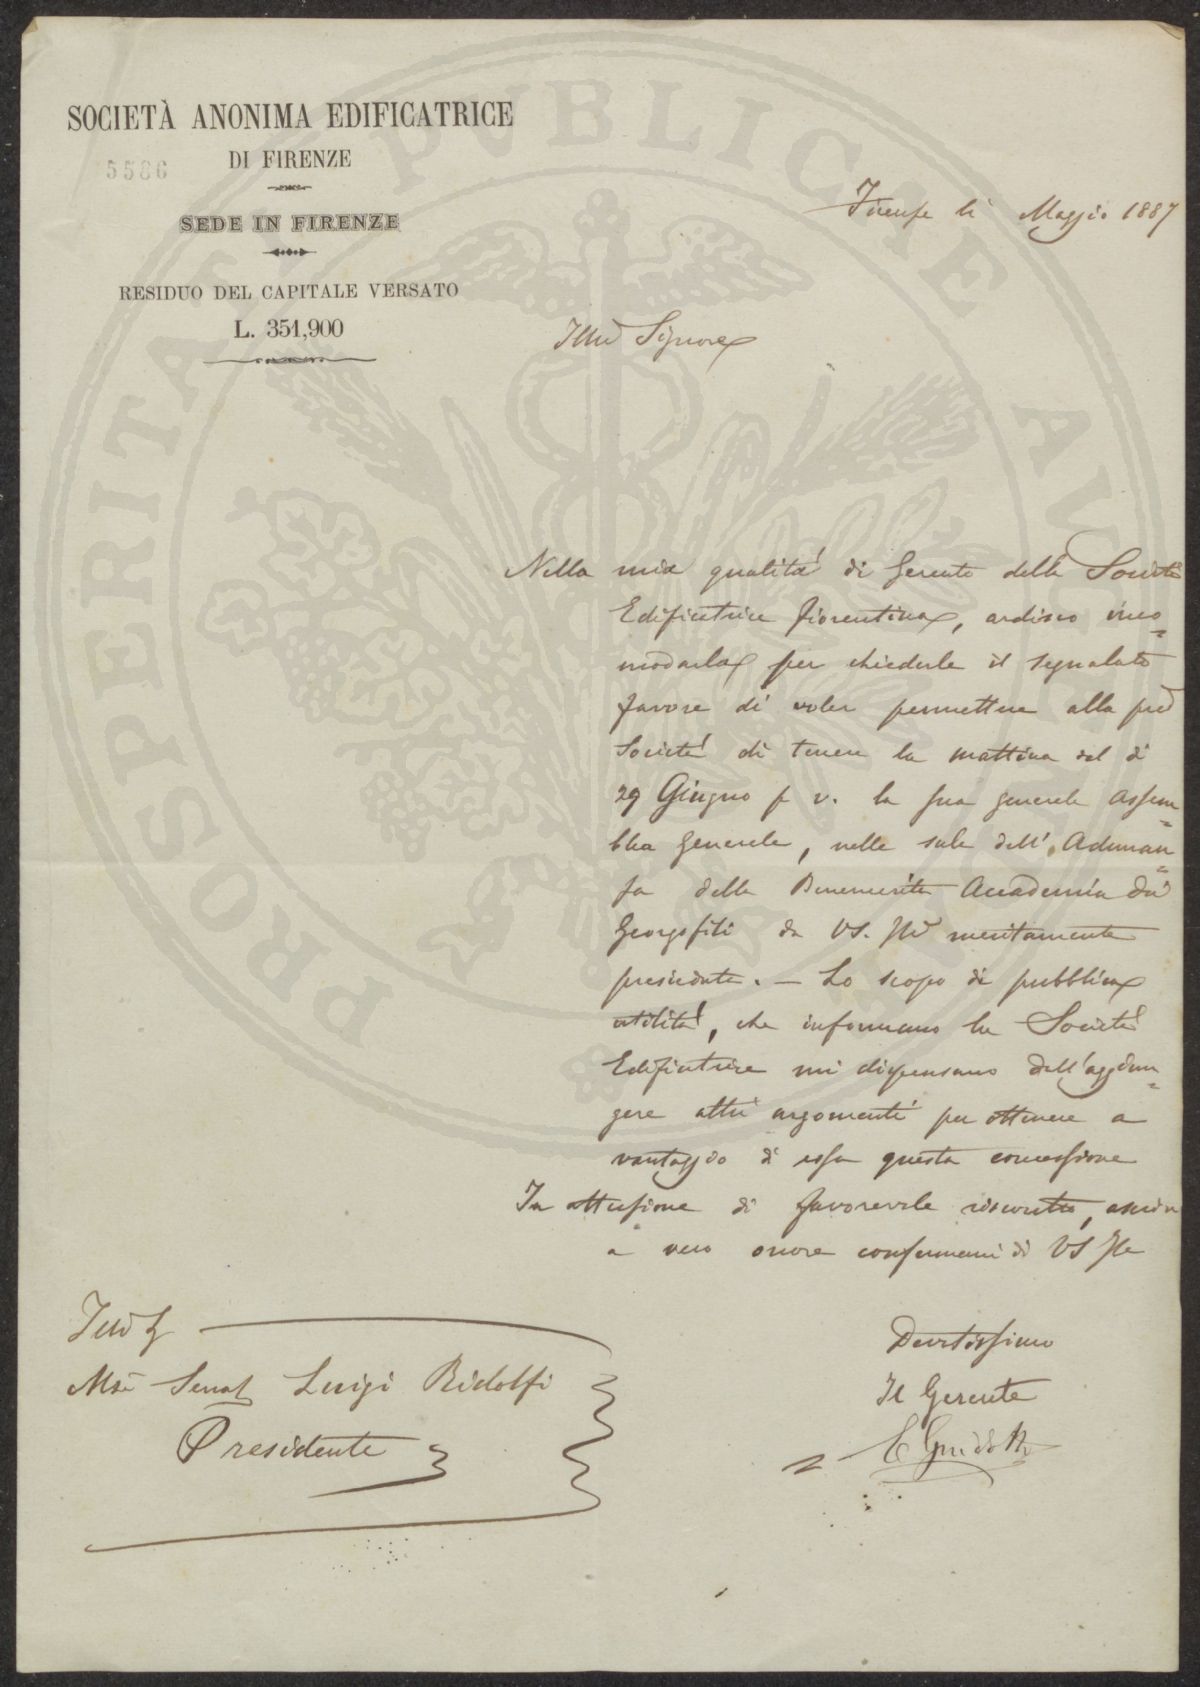 SOCIETÀ ANONIMA EDIFICATRICE
DI FIRENZE
5586
SEDE IN FIRENZE
RESIDUO DEL CAPITALE VERSATO
L. 351,900
Firenze li Maggio 1887
Illmo Signore
Nella mia qualità di Gerente della Società
Edificatrice fiorentina, ardisco inco=
modarla per chiederle il segnalato
favore di voler permettere alla pred
Società di tenere la mattina del dì
29 Giugno p v. la sua generale Assem=
blea generale, nelle sale dell'Adunan=
za della Benemerita Accademia dei
Georgofili da VS. Illma meritamente
presieduta. — Lo scopo di pubblica
utilità, che informano la Società
Edificatrice mi dispensano dall'aggiun=
gere altri argomenti per ottenere a
vantaggio di essa questa concessione
In attesione di favorevole riscontro,
a vero onore confermarmi di VS Illma
Devotissimo
Il Gerente
E Guidotti
Illmo
Mse Senat Luigi Ridolfi
Presidente
PROSPERITATI PVBLICAE AVGENDAE